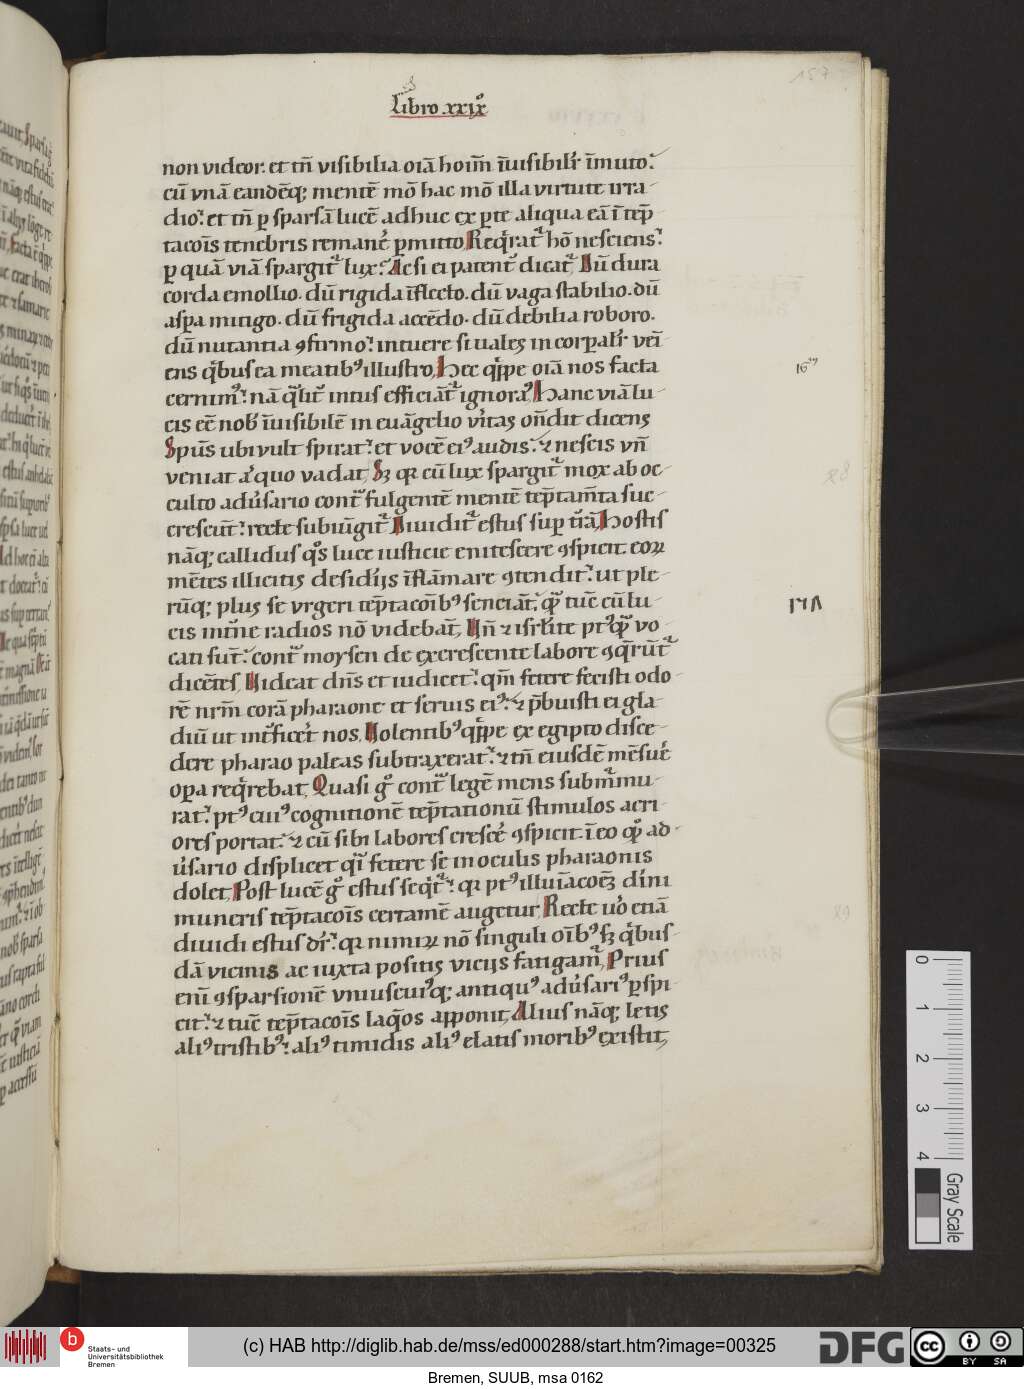 157
Libro .xxixº
non videor. et tn̄ visibilia oīa hoim̄ īuisibilr̄ īmuto:
cū vnā eandēq; mentē mō hac mō illa virtute irra-
dio: et tn̄ p sparsā lucē adhuc ex pte aliqua eā ī tep̄-
tacoīs tenebris remanē pmitto, Req̄rat hō nesciens:
p quā viā spargit̄ lux: Ac si ei patent̄ dicat, Dū dura
corda emollio. dū rigida īflecto. dū vaga stabilio. dū
aspa mitigo. dū frigida accēdo. dū debilia roboro.
dū nutantia ꝯfirmo: intuere si vales incorpalr̄ vei-
ens q̄bus ea meatibꝰ illustro, Hec q̄ppe oīa nos facta
16
cernimꝰ: nā q̄lit̄ intus efficiāt̄ ignoraꝰ, Hanc viā lu-
cis eē nob̄ īuisibilē in euāgelio v̄itas on̄dit dicens
Spūs ubi vult spirat: et vocē eiꝰ audis: ⁊ nescis vn̄
veniat a̵ quo vadat, Sꝫ qꝛ cū lux spargit̄ mox ab oc-
culto adūsario cont̄ fulgentē mentē tep̄tam̄ta suc-
crescūt: recte subiūgit̄ Diuidit̄ estus sup t̄rā, Hostis
nāq; callidus q̄s luce iusticie enitescere ꝯspicit. eoꝝ
mētes illicitis desidijs īflāmare ꝯtendit: ut ple-
rūq; plus se vrgeri tep̄tacoībꝰ senciāt, q̄ tūc cū lu-
17
cis int̄ne radios nō videbāt, Vn̄ ⁊ isrl̄ite ptꝰq̄ vo-
cati sūt: cont̄ moysen de excrescente labore ꝯq̄rūt̄
dicētes, Videat dn̄s et iudicet: qm̄ fetere fecisti odo-
rē nrm̄ corā pharaone et seruis eiꝰ: ⁊ p̄buisti ei gla-
diū ut int̄ficēt nos, Volentibꝰ q̄ppe ex egipto disce-
dere pharao paleas subtraxerat: ⁊ tn̄ eiusdē mēsuē
opa req̄rebat, Quasi gͦ cont̄ legē mens subm̄mu-
rat: ptꝰ cuiꝰ cognitionē tep̄tationū stimulos acri-
ores portat: ⁊ cū sibi labores crescē ꝯspicit. ī eo q̄ ad-
ūsario displicet q̄i fetere se in oculis pharaonis
dolet, Post lucē gͦ estus seq̄t: qꝛ ptꝰ illuīacoēꝫ diīni
muneris tep̄tacoīs certamē augetur, Recte v̄o etiā
diuidi estus dr̄: qꝛ nimiꝝ nō singuli oībꝰ sꝫ q̄bus-
dā vicinis ac iuxta positis vicijs fatigam̄, Prius
enī ꝯsparsionē vniuscuiꝰq; antiquꝰ adūsariꝰ pspi-
cit: ⁊ tūc tep̄tacoīs laq̄os apponit, Alius nāq; letis
aliꝰ tristibꝰ: aliꝰ timidis aliꝰ elatis moribꝰ existit,
0
1
2
3
4
Gray Scale
b
Staats- und
Universitätsbibliothek
Bremen
(c) HAB http://diglib.hab.de/mss/ed000288/start.htm?image=00325
DFG
cc
BY SA
Bremen, SUUB, msa 0162